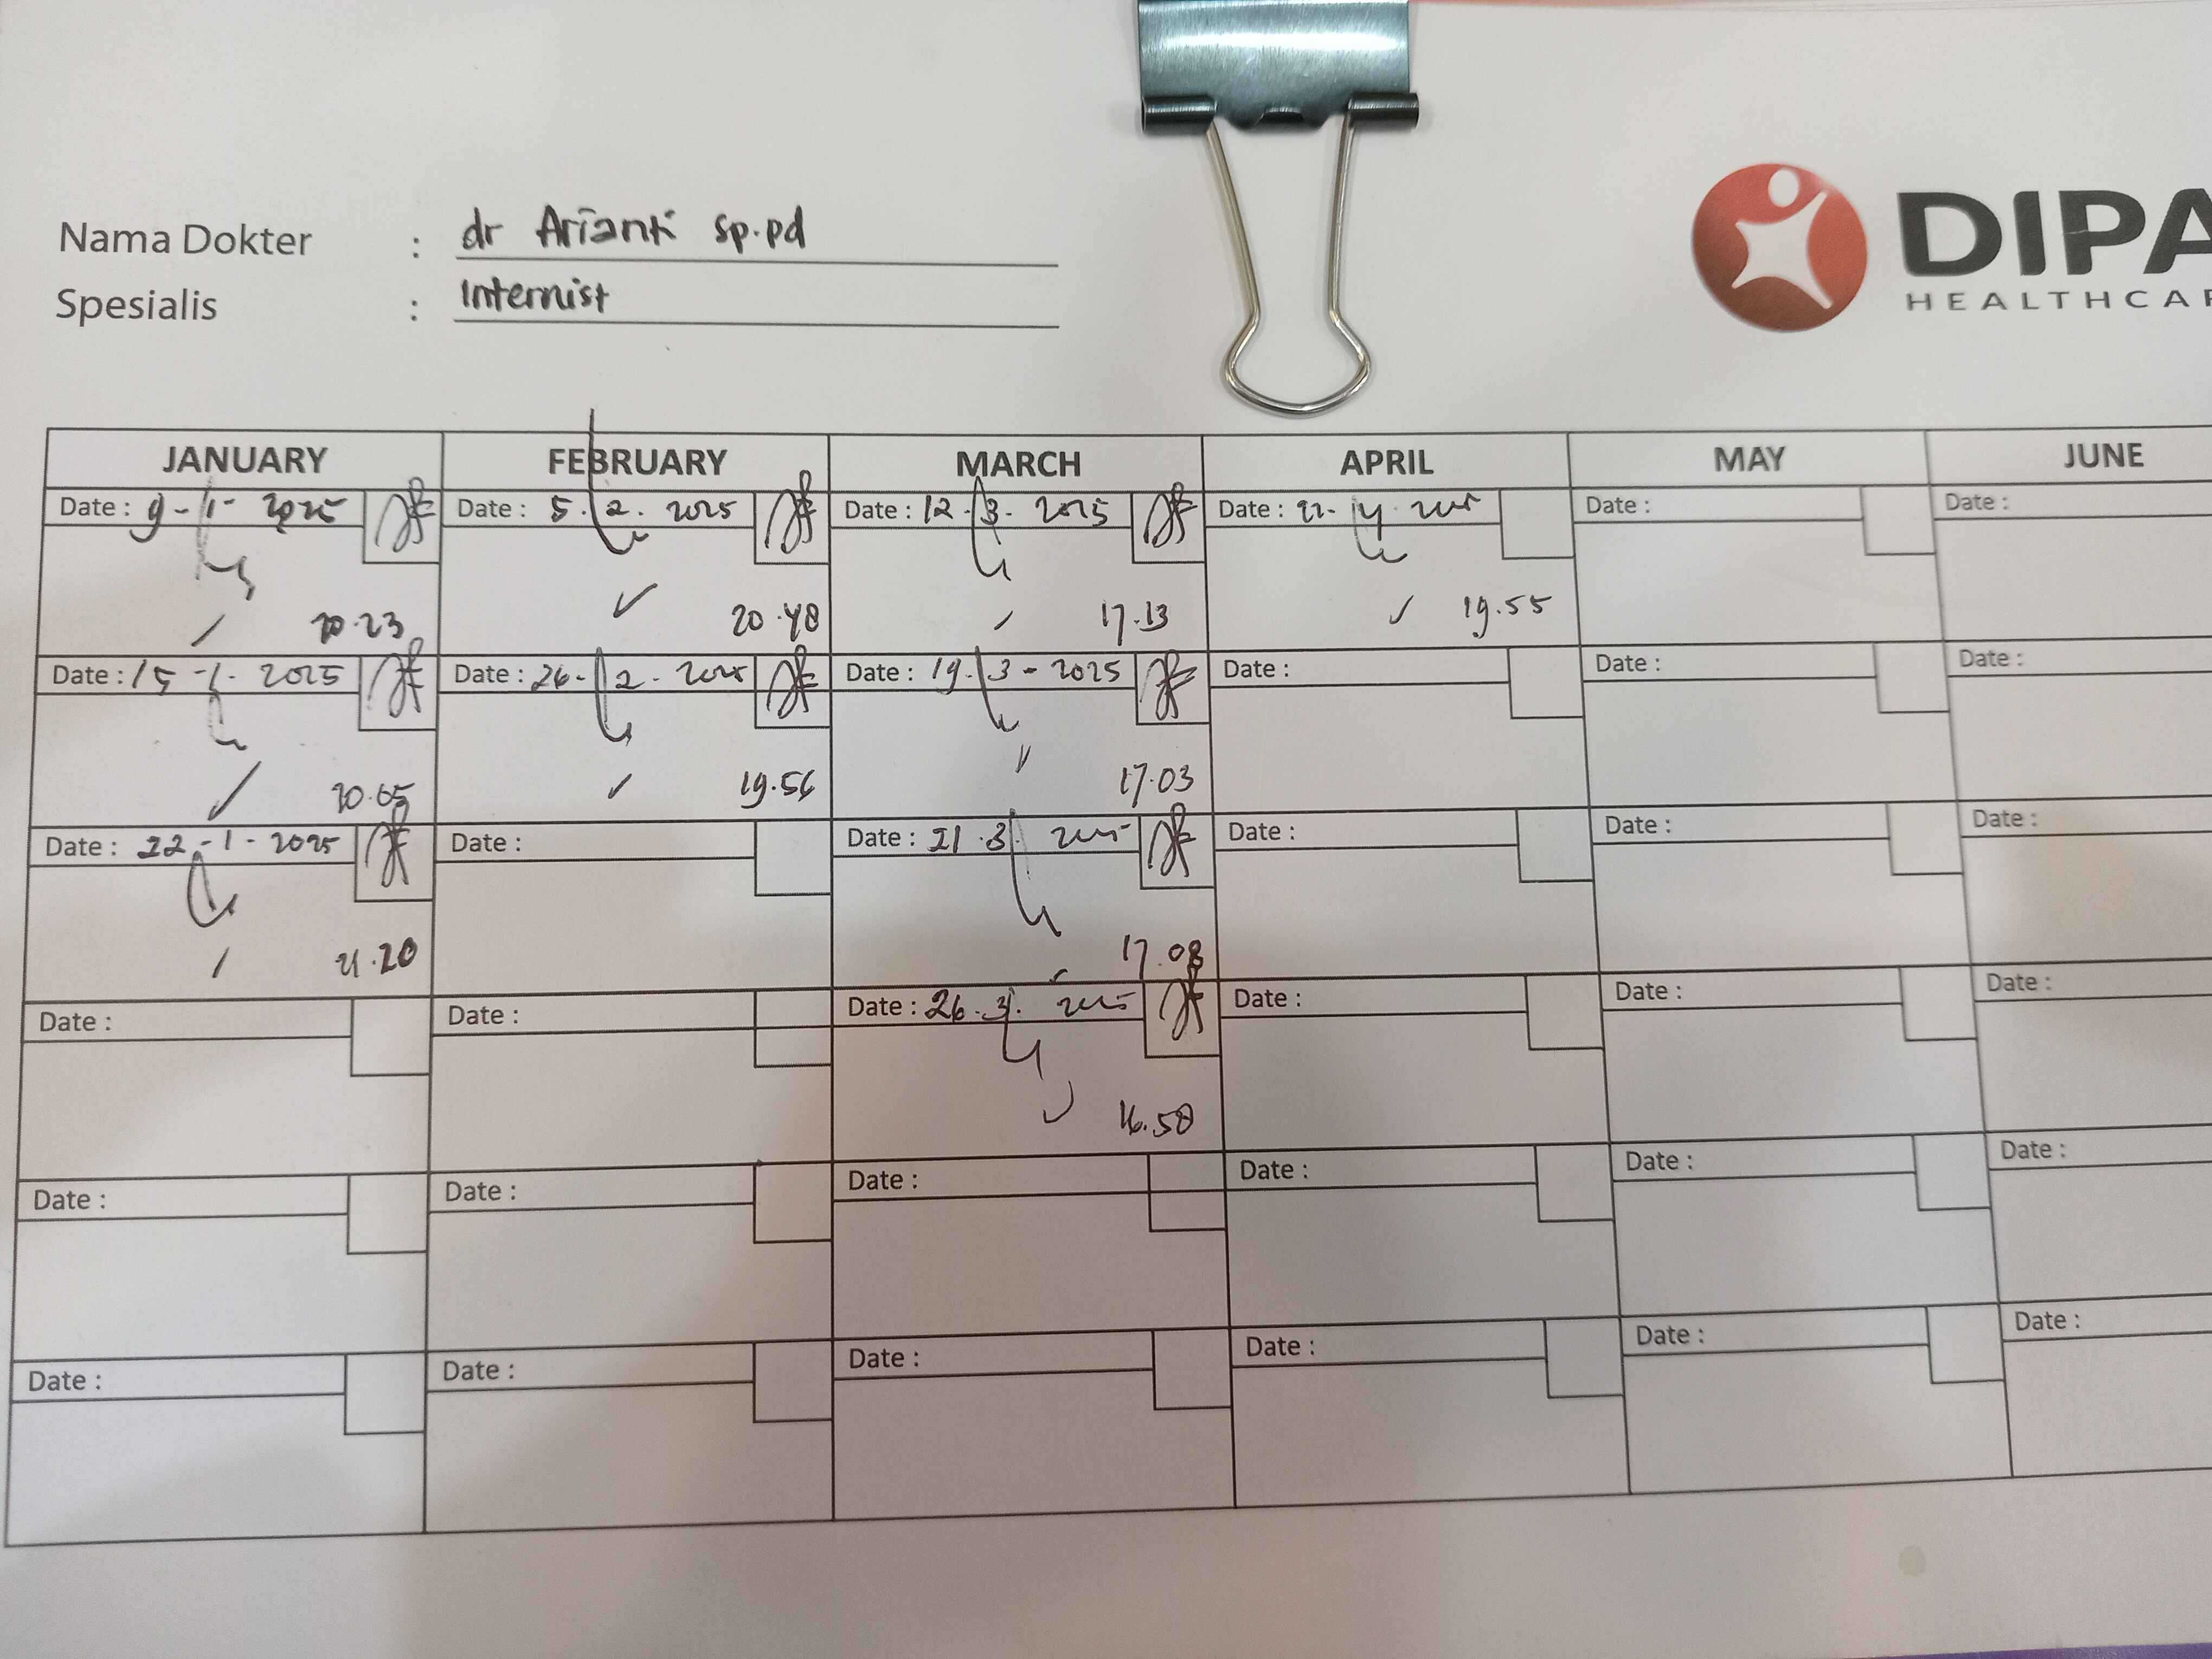 Nama Dokter : dr Arianti sp.pd
Spesialis : Internist
DIPA
HEALTHCAR
JANUARY FEBRUARY MARCH APRIL MAY JUNE
Date : 9-1-2025 Date : 5.2.2025 Date : 12.3.2025 Date : 22.4.2025 Date : Date :
20.23 20.48 17.13 19.55
Date : 15-1-2025 Date : 26.2.2025 Date : 19.3-2025 Date : Date : Date :
20.05 19.56 17.03
Date : 22-1-2025 Date : Date : 21.3.2025 Date : Date : Date :
21.20 17.08
Date : Date : Date : 26.3.2025 Date : Date : Date :
16.58
Date : Date : Date : Date : Date : Date :
Date : Date : Date : Date : Date : Date :